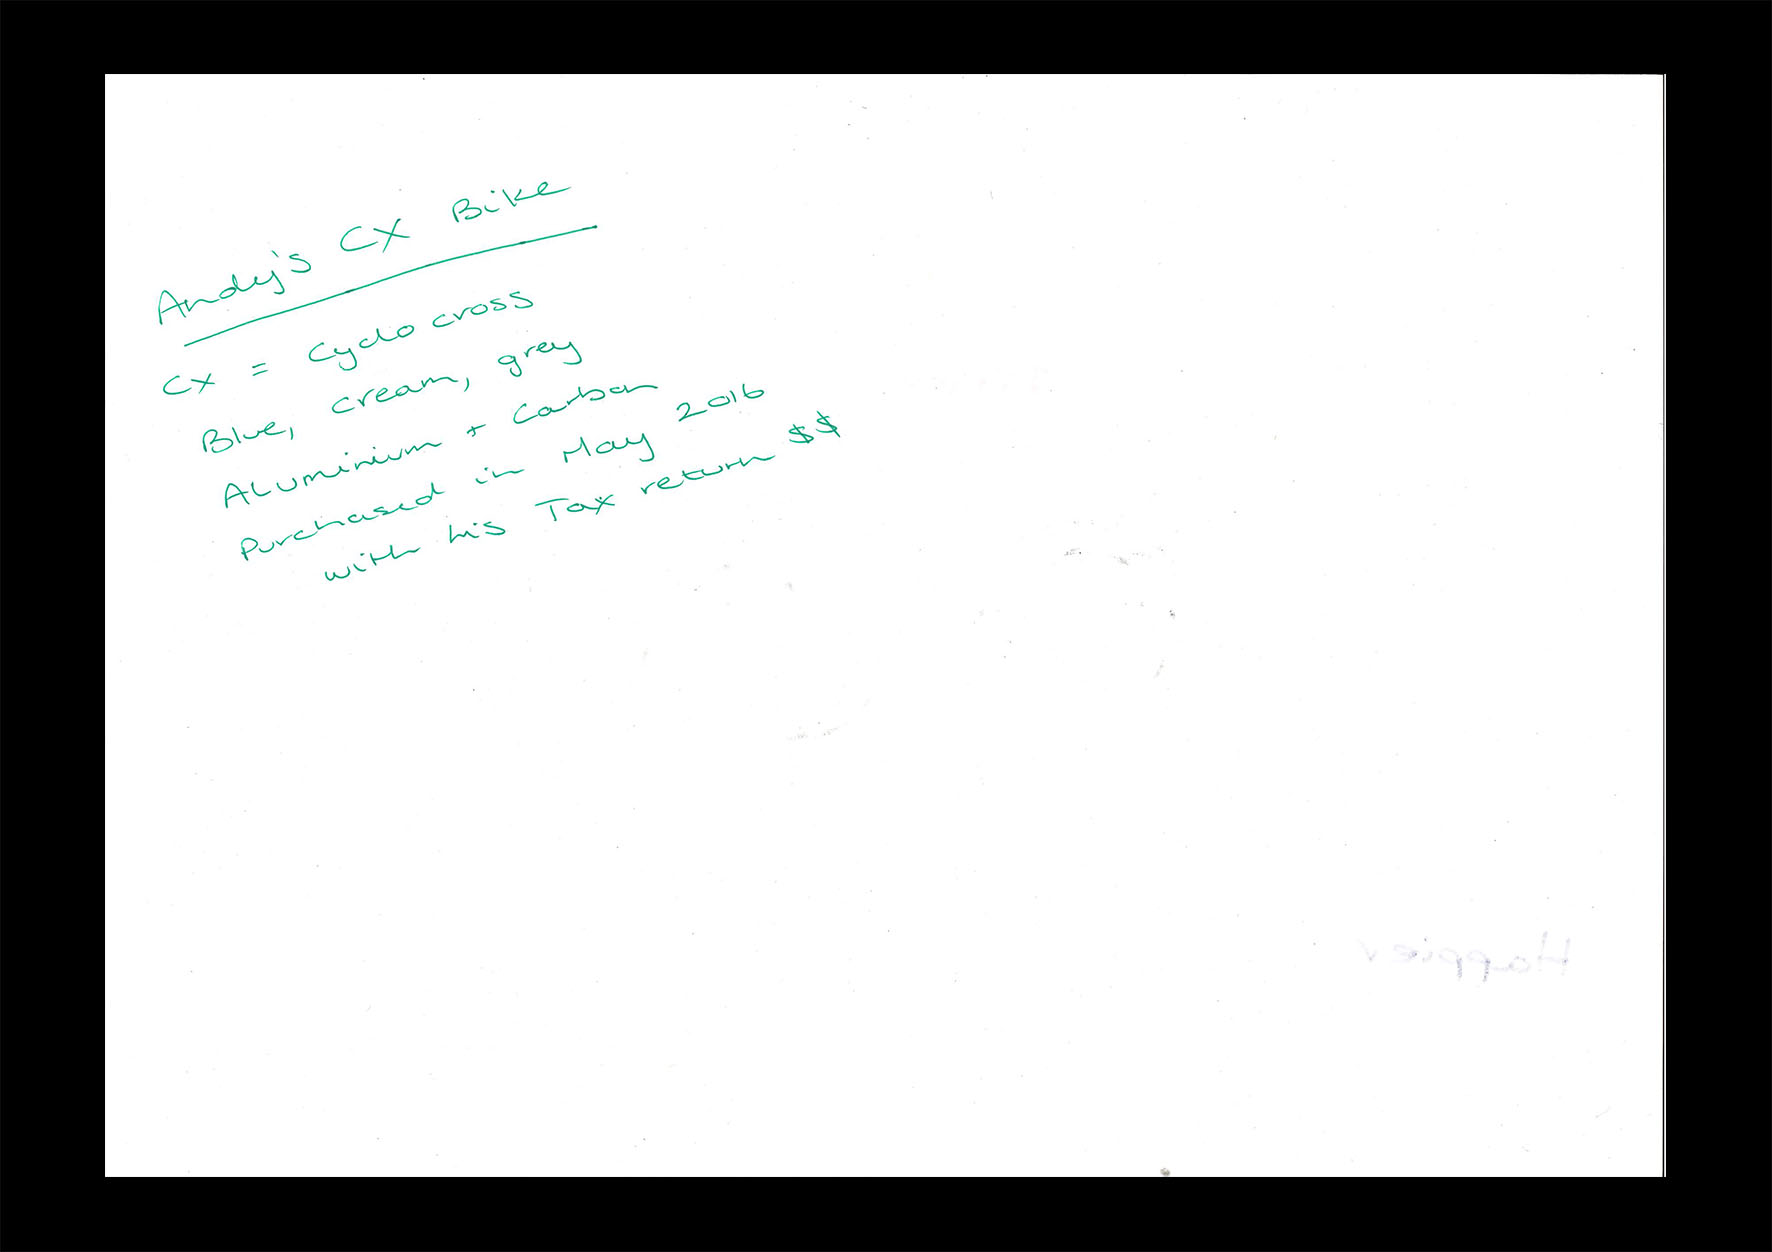 Andy's CX Bike
CX = Cyclo cross
Blue, cream, grey
Aluminium + Carbon
Purchased in May 2016
with his Tax return $$
Happier